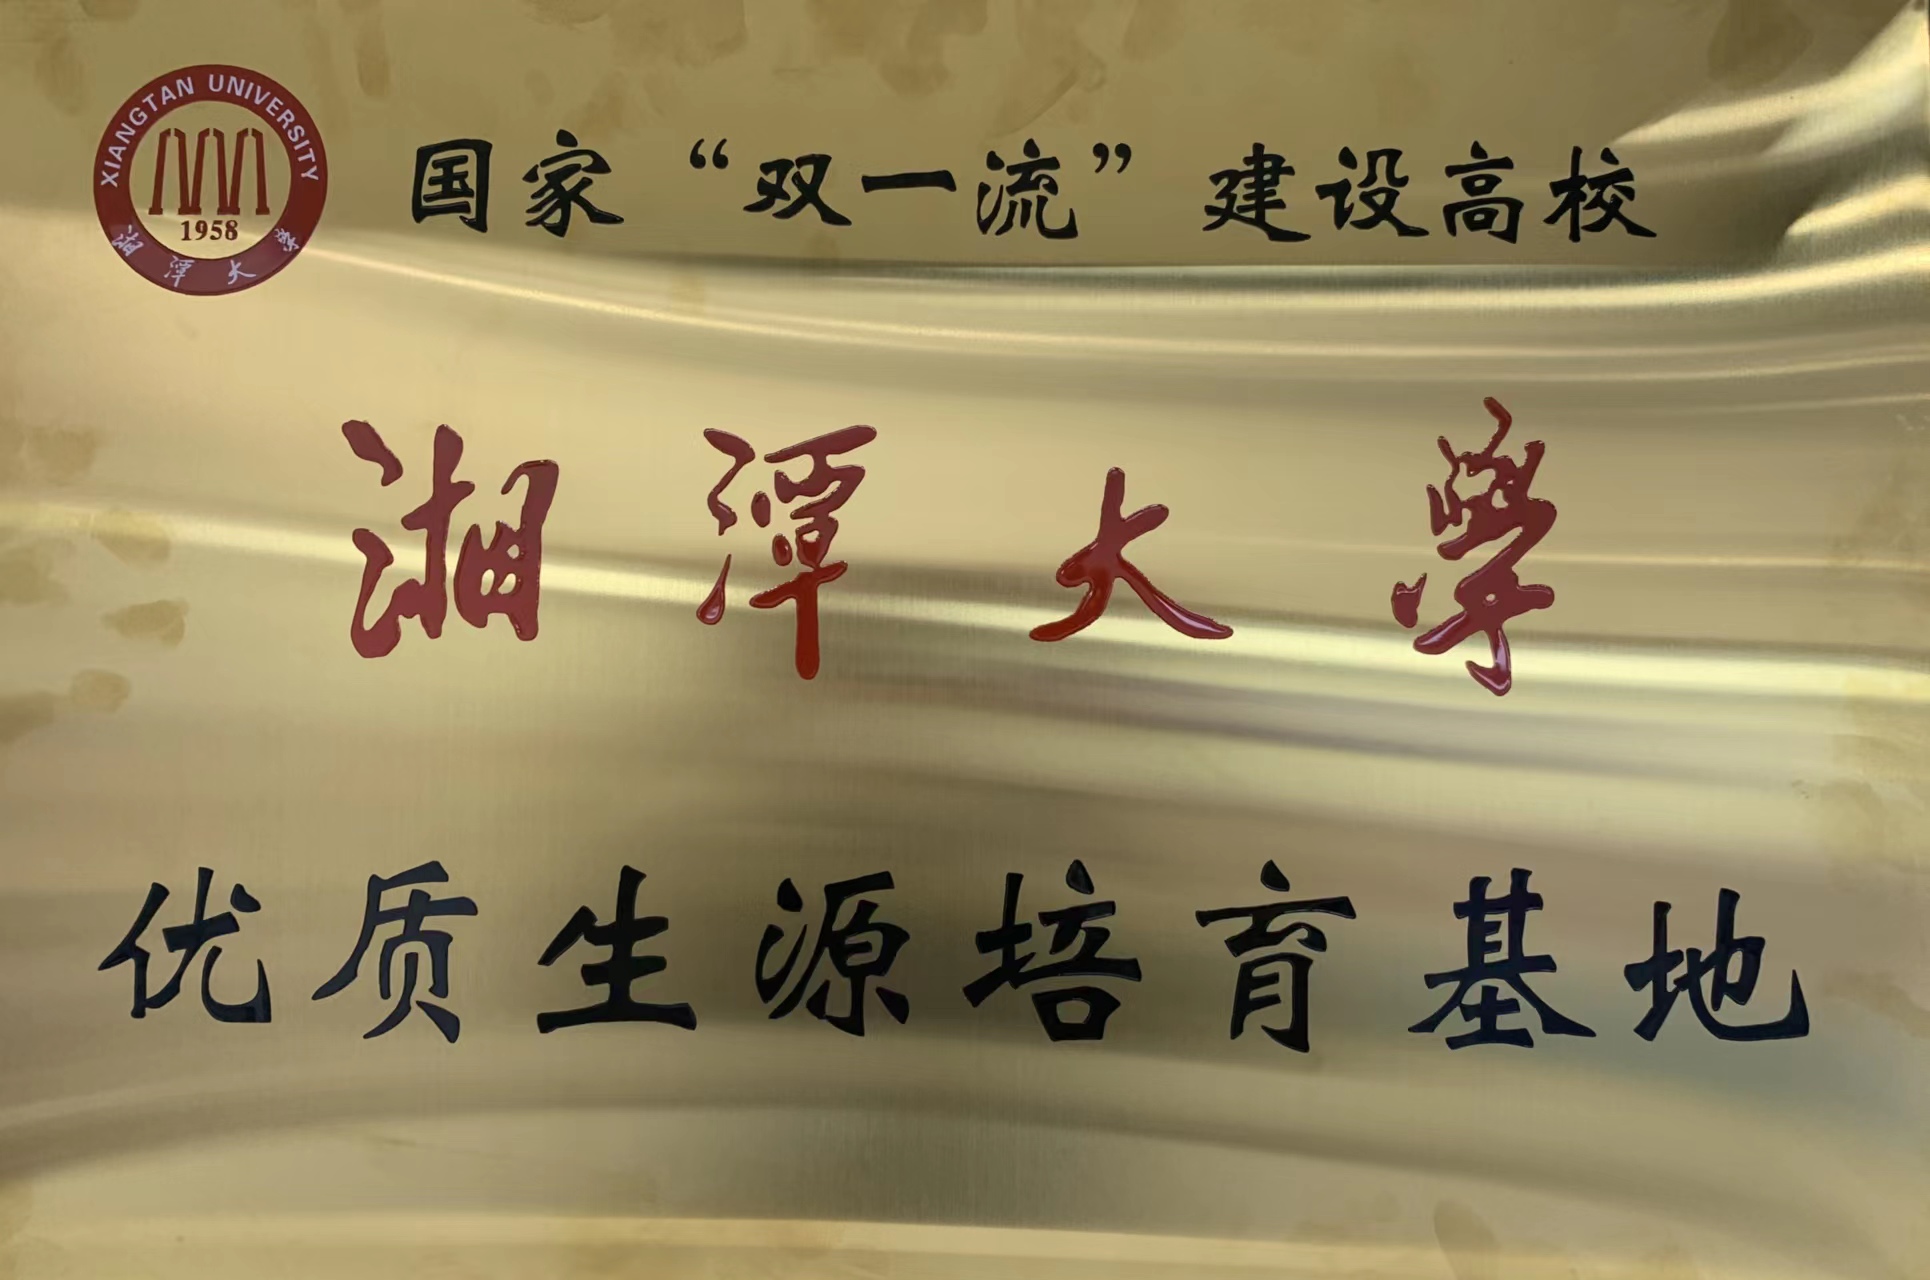 XIANGTAN UNIVERSITY
1958
湘潭大學
国家“双一流”建设高校
湘潭大學
优质生源培育基地